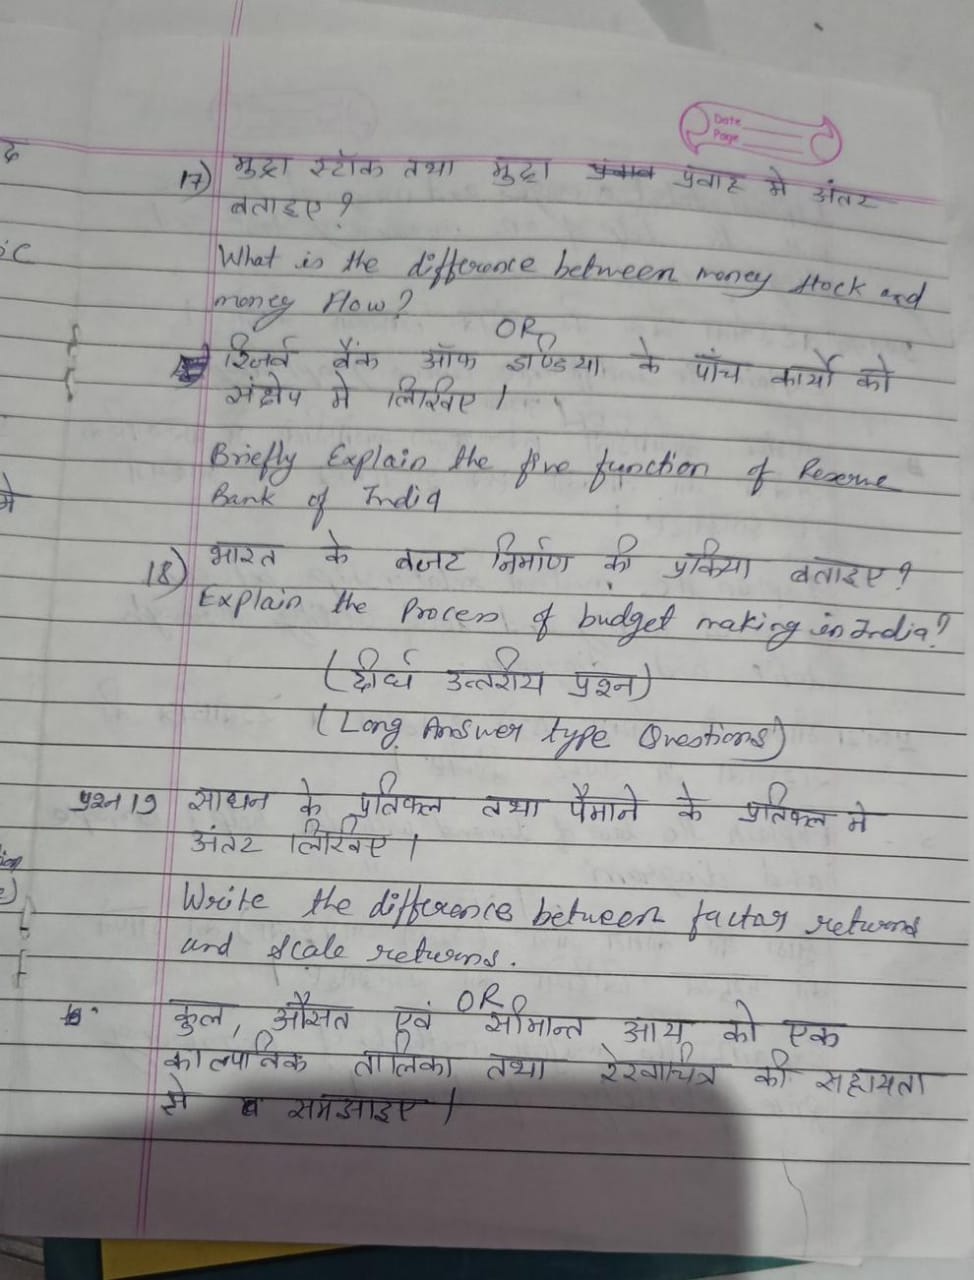 Date
Page
17) मुद्रा स्टॉक तथा मुद्रा प्रवाह मे अंतर
बताइए ?
What is the difference between money stock and
money flow?
OR
रिजर्व बैंक ऑफ इण्डिया के पाँच कार्यों को
संक्षेप मे लिखिए ।
Briefly Explain the five function of Reserve
Bank of India
18) भारत के बजट निर्माण की प्रकिया बताइए ?
Explain the Process of budget making in India?
(दीर्घ उत्तरीय प्रश्न)
(Long Answer type Questions)
प्रश्न 19 साधन के प्रतिफल तथा पैमाने के प्रतिफल मे
अंतर लिखिए ।
Write the difference between factor returns
and scale returns.
OR
कुल, औसत एवं सीमान्त आय को एक
काल्पनिक तालिका तथा रेखाचित्र की सहायता
से समझाइए ।